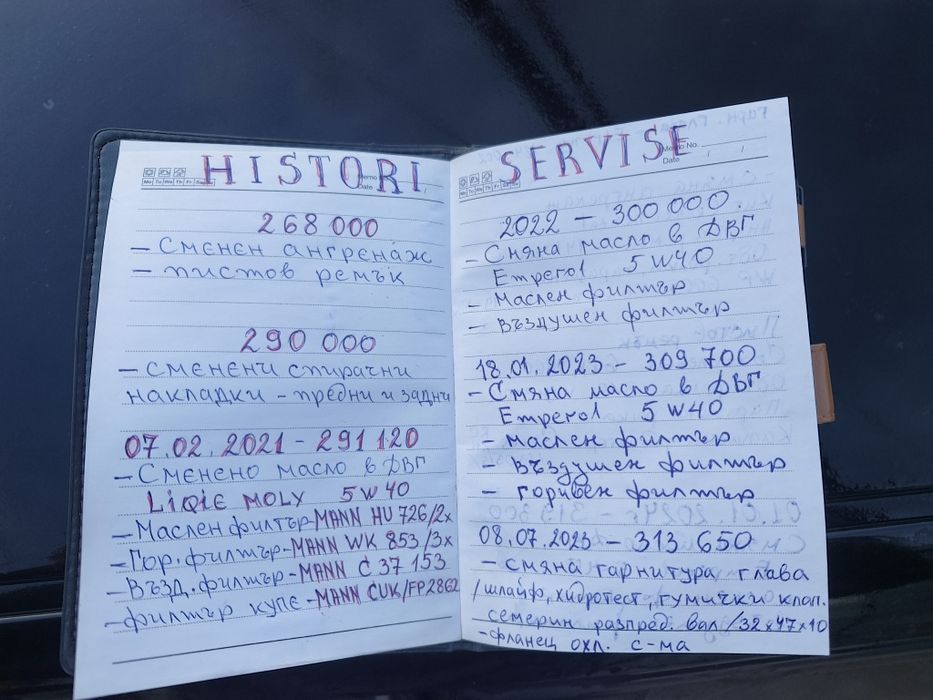 HISTORI
268 000
- Сменен ангренаж
- пистов ремък
290 000
- сменени спирачни
накладки - предни и задни
07.02.2021 - 291 120
- Сменено масло в ДВГ
LIQIE MOLY 5W40
- Маслен филтър - MANN HU 726/2x
- Гор. филтър - MANN WK 853/3x
- Възд. филтър - MANN C 37 153
- филтър купе - MANN CUK/FP2862
SERVISE
Memo No.
Date / /
2022 - 300 000.
- Смяна масло в ДВГ
Emperol 5W40
- Маслен филтър
- Въздушен филтър
18.01.2023 - 309 700
- Смяна масло в ДВГ
Emperol 5W40
- маслен филтър
- въздушен филтър
- горивен филтър
08.07.2023 - 313 650
- смяна гарнитура глава
/шлайф, хидротест, гумички клап.
семерин разпред. вал /32x47x10
- фланец охл. с-ма